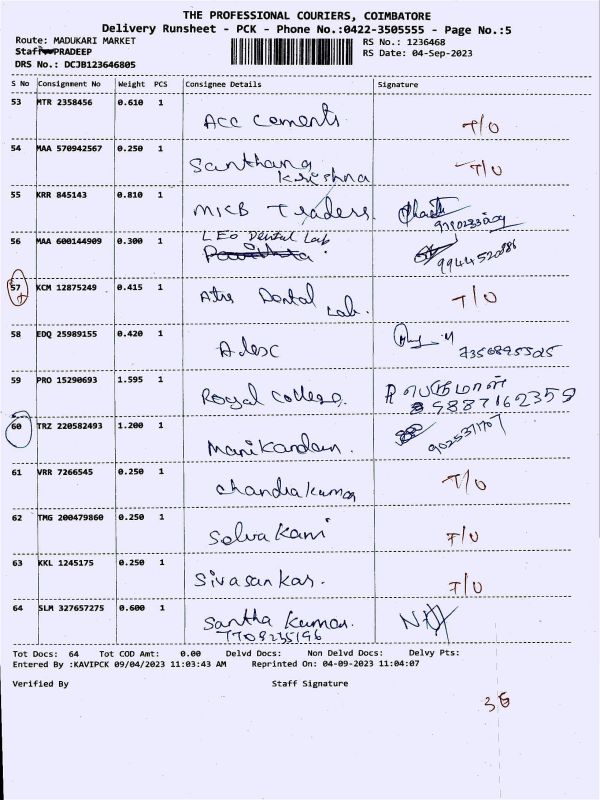 THE PROFESSIONAL COURIERS, COIMBATORE
Delivery Runsheet - PCK - Phone No.:0422-3505555 - Page No.:5
Route: MADUKARI MARKET RS No.: 1236468
Staff PRADEEP RS Date: 04-Sep-2023
DRS No.: DCJB123646805
S No Consignment No Weight PCS Consignee Details Signature
53 MTR 2358456 0.610 1 Acc cements T/O
54 MAA 570942567 0.250 1 Santhana Krishna T/O
55 KRR 845143 0.810 1 MKB Traders.
56 MAA 600144909 0.300 1 LEO Dental Lab 9944520886
57 KCM 12875249 0.415 1 Dental Lab. T/O
58 EDQ 25989155 0.420 1 7350895525
59 PRO 15290693 1.595 1 Royal college. பெருமாள் 9887162358
60 TRZ 220582493 1.200 1 Manikandan.
61 VRR 7266545 1 0.250 1 Chandrakumar T/O
62 TMG 200479860 0.250 1 Selvakani T/O
63 KKL 1245175 0.250 1 Sivasankar. T/O
64 SLM 327657275 0.600 1 Santha Kumar.
7709235196
Tot Docs: 64 Tot COD Amt: 0.00 Delvd Docs: Non Delvd Docs: Delvy Pts:
Entered By :KAVIPCK 09/04/2023 11:03:43 AM Reprinted On: 04-09-2023 11:04:07
Verified By Staff Signature